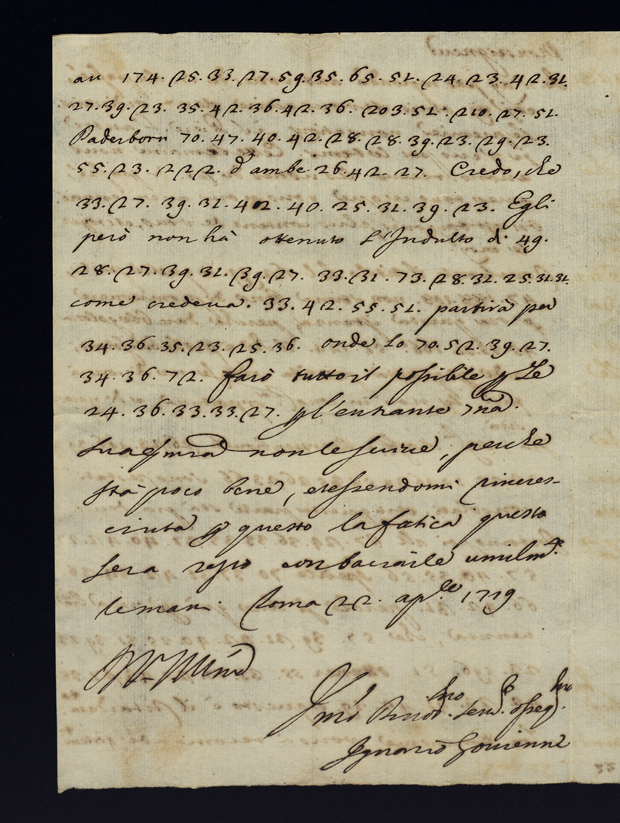 au 174. 25. 33. 27. 59. 35. 65. 51. 24. 23. 42. 31.
27. 39. 23. 35. 42. 36. 42. 36. 203. 51. 210. 27. 51.
Paderborn 70. 47. 40. 42. 28. 28. 39. 23. 29. 23.
55. 23. 222. d'ambe. 26. 42. 27. Credo, che
33. 27. 39. 31. 402. 40. 25. 31. 39. 23. Egli
però non hà ottenuto l'Indulto di 49.
28. 27. 39. 31. 39. 27. 33. 31. 73. 28. 31. 25. 31. 31.
come credeva. 33. 42. 55. 51. partirà per
34. 36. 35. 23. 25. 36. onde lo 70. 52. 39. 27.
34. 36. 72. farò tutto il possibile p Le
24. 36. 33. 33. 27. p l'entrante
non le scrive, perche
stà poco bene, et essendomi rincres-
ciuta p questo la fatica questa
sera resto con baciarle umilm.te
le mani. Roma 22. ap.le 1719
Ignazio